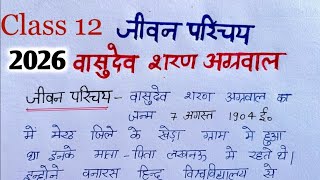 Class 12 जीवन परिचय
2026 वासुदेव शरण अग्रवाल
जीवन परिचय - वासुदेव शरण अग्रवाल का
जन्म 7 अगस्त 1904 ई०
में मेरठ जिले के खेड़ा ग्राम में हुआ
था इनके माता-पिता लखनऊ में रहते थे।
इन्होंने बनारस हिन्दू विश्वविद्यालय से